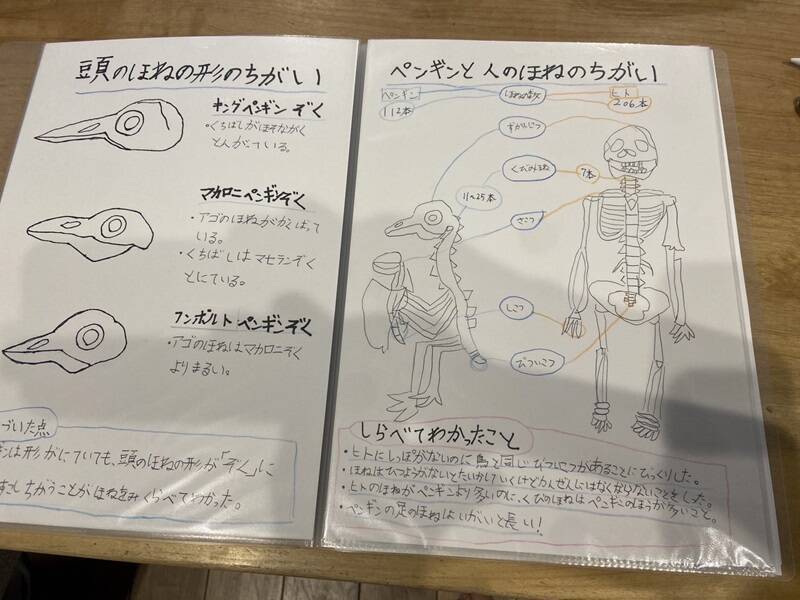 頭のほねの形のちがい
キングペンギンぞく
・くちばしがほそながく
とんがている。
マカロニペンギンぞく
・アゴのほねがかくばって
いる。
・くちばしはマゼランぞく
とにている。
フンボルトペンギンぞく
・アゴのほねはマカロニぞく
よりまるい。
づいた点
は形がにていても、頭のほねの形が「ぞく」に
すこしちがうことがほねをみくらべてわかった。
ペンギンと人のほねのちがい
ペンギン
ほねの数
ヒト
112本
206本
ずがいこつ
くびのほね
7本
11~25本
さこつ
しこつ
びついこつ
しらべてわかったこと
・ヒトにしっぽがないのに鳥と同じびついこつがあることにびっくりした。
・ほねはひつようがないとたいかしていくけどかんぜんにはなくならないことをした。
・ヒトのほねがペンギンより多いのに、くびのほねはペンギンのほうが多いこと。
・ペンギンの足のほねはいがいと長い!